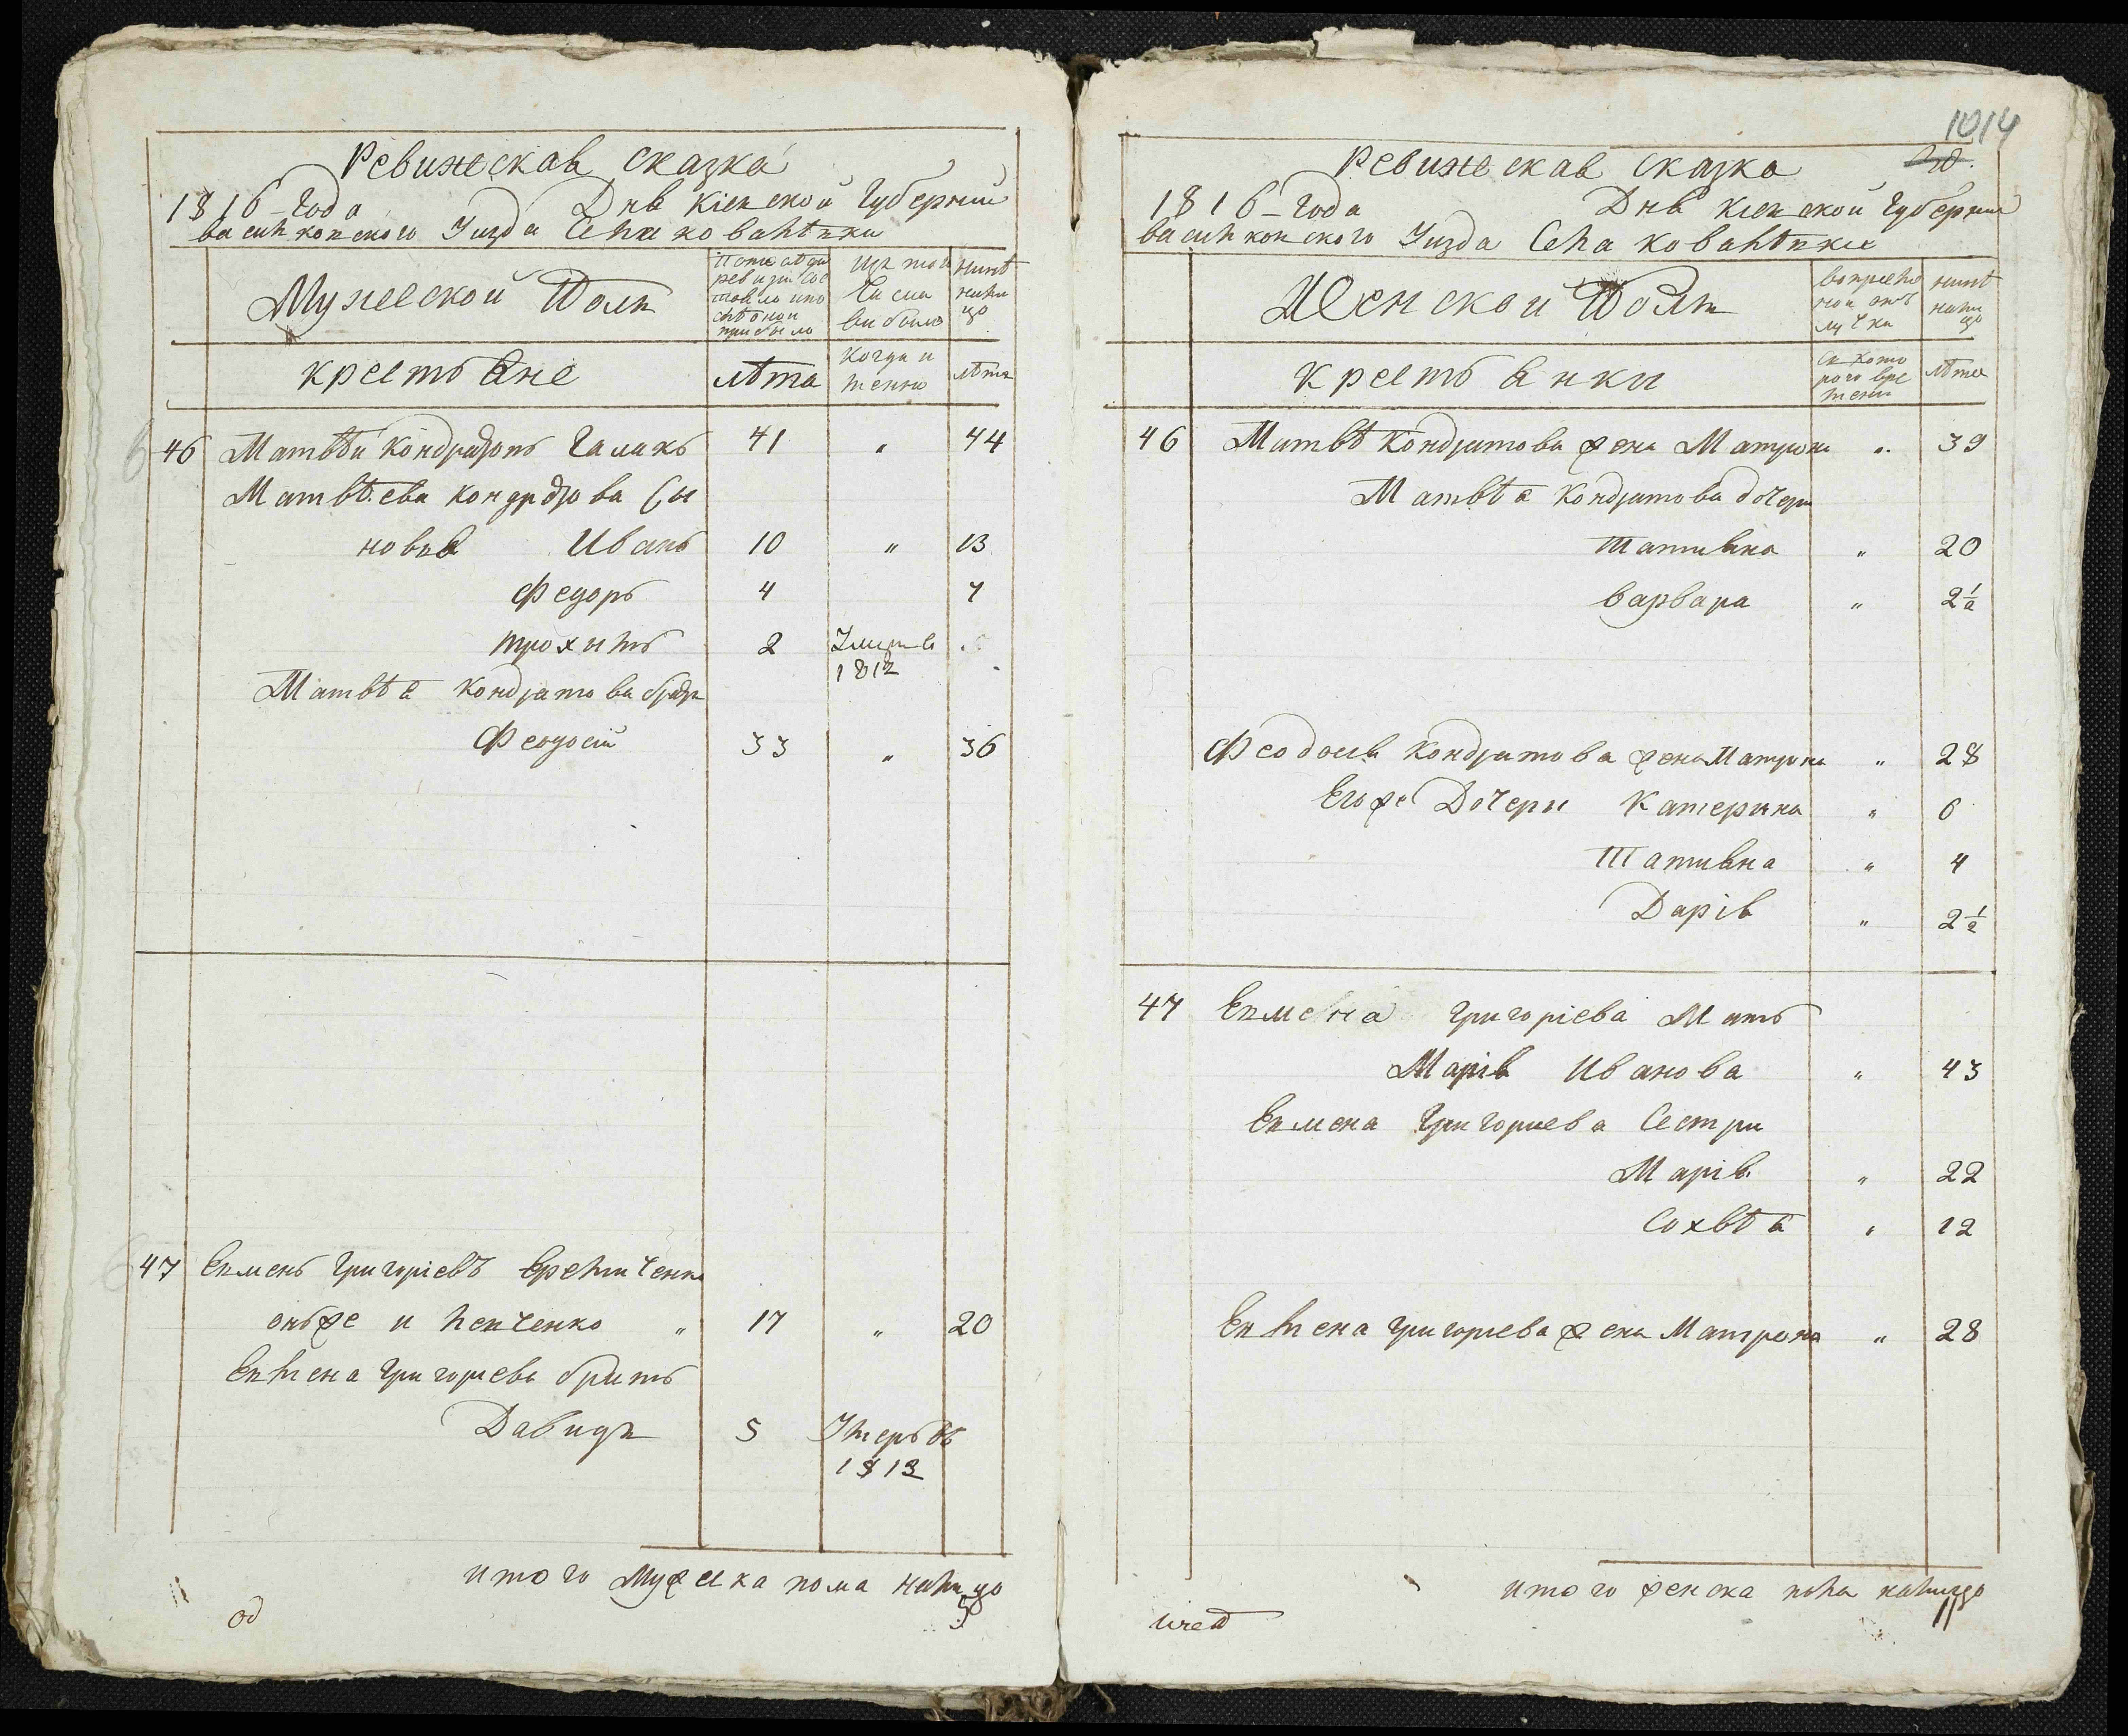 Ревижская сказка
1816-года Дня Кіевской Губерніи
василковского Уизда Села ковалѣвки
Мужеской Полъ
По послѣдней
ревизіи сос
тояло и по
слѣ оной
прибыло
Изъ того
числа
выбыло
нынѣ
на ли
цо
крестьяне
лѣта
Когда и
менно
лѣта
46 Матвѣй Кондратовъ Галакъ 41 „ 44
Матвѣева Кондратова Сы
новья Иванъ 10 „ 13
Федоръ 4 7
трохимъ 2 Умеръ в
1812
Матвѣя Кондратова братъ
Феодосій 33 „ 36
47 Евменъ Григоріевъ
онъже и „ 17 „ 20
Евмена Григорієва братъ
Давидъ 5 Умеръ въ
1813
итого Мужеска пола налицо
5
1014
Ревижская сказка
1816-года Дня Кіевской Губерніи
василковского Уизда Села ковалѣвки
Женской Полъ
во времен
ной отъ
лучки
нынѣ
нали
цо
крестьянки
Съ кото
рого вре
мени
лѣта
46 Матвѣя Кондратова жена Матрона „ 39
Матвѣя Кондратова дочери
Татияна „ 20
Варвара „ 2½
Феодосія Кондратова жена Матрона „ 28
Егоже Дочери Катерина „ 6
Татияна „ 4
Дарія „ 2½
47 Евмена Григоріева Мать
Марія Иванова „ 43
Евмена Григориева Сестри
Марія „ 22
Сохвѣя „ 12
Евмена Григориева жена Матрона „ 28
итого женска пола налицо
11